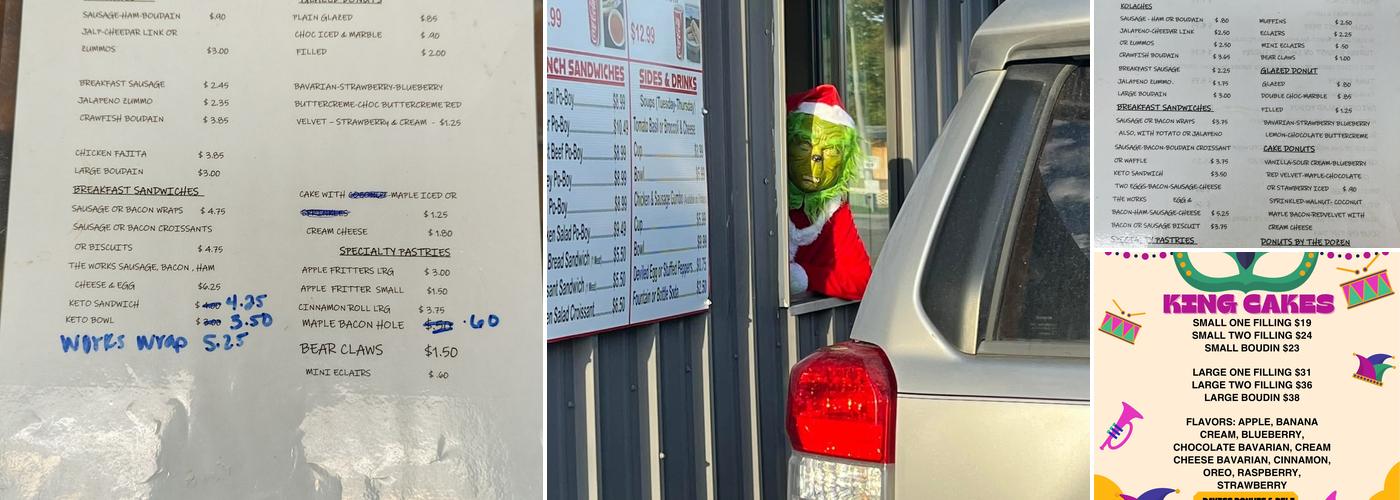 SAUSAGE-HAM-BOUDAIN $.90
JALP-CHEEDAR LINK OR
ZUMMOS $3.00
BREAKFAST SAUSAGE $2.45
JALAPENO ZUMMO $2.35
CRAWFISH BOUDAIN $3.85
CHICKEN FAJITA $3.85
LARGE BOUDAIN $3.00
BREAKFAST SANDWICHES
SAUSAGE OR BACON WRAPS $4.75
SAUSAGE OR BACON CROISSANTS
OR BISCUITS $4.75
THE WORKS SAUSAGE, BACON, HAM
CHEESE & EGG $6.25
KETO SANDWICH $4.00 4.25
KETO BOWL $3.00 3.50
Works Wrap 5.25
GLAZED DONUTS
PLAIN GLAZED $.85
CHOC ICED & MARBLE $.90
FILLED $2.00
BAVARIAN-STRAWBERRY-BLUEBERRY
BUTTERCREME-CHOC BUTTERCREME RED
VELVET - STRAWBERRY & CREAM - $1.25
CAKE WITH MAPLE ICED OR
$1.25
CREAM CHEESE $1.80
SPECIALTY PASTRIES
APPLE FRITTERS LRG $3.00
APPLE FRITTER SMALL $1.50
CINNAMON ROLL LRG $3.75
MAPLE BACON HOLE $.50 .60
BEAR CLAWS $1.50
MINI ECLAIRS $.60
.99
$12.99
NCH SANDWICHES
Po-Boy $8.99
r Po-Boy $10.49
t Beef Po-Boy $8.99
Po-Boy $8.99
Po-Boy $8.99
en Salad Po-Boy $9.49
Bread Sandwich $5.50
sant Sandwich $5.50
en Salad Croissant $6.50
SIDES & DRINKS
Soups (Tuesday-Thursday)
Tomato Basil or Broccoli & Cheese
Cup
Bowl
Chicken & Sausage Gumbo
Cup
Bowl
Deviled Egg or Stuffed Peppers
Fountain or Bottle Soda $2.50
KOLACHES
SAUSAGE - HAM OR BOUDAIN $.80
JALAPENO-CHEEDAR LINK $2.50
OR ZUMMOS $2.50
CRAWFISH BOUDAIN $3.65
BREAKFAST SAUSAGE $2.25
JALAPENO ZUMMO. $1.75
LARGE BOUDAIN $3.00
BREAKFAST SANDWICHES
SAUSAGE OR BACON WRAPS $3.75
ALSO, WITH POTATO OR JALAPENO
SAUSAGE-BACON-BOUDAIN CROISSANT
OR WAFFLE $3.75
KETO SANDWICH $3.50
TWO EGGS-BACON-SAUSAGE-CHEESE
THE WORKS EGG &
BACON-HAM-SAUSAGE-CHEESE $5.25
BACON OR SAUSAGE BISCUIT $3.75
SPECIALTY PASTRIES
MUFFINS $2.50
ECLAIRS $2.25
MINI ECLAIRS $.50
BEAR CLAWS $1.00
GLAZED DONUT
GLAZED $.80
DOUBLE CHOC-MARBLE $.85
FILLED $1.25
BAVARIAN-STRAWBERRY BLUEBERRY
LEMON-CHOCOLATE BUTTERCREME
CAKE DONUTS
VANILLA-SOUR CREAM-BLUEBERRY
RED VELVET-MAPLE-CHOCOLATE
OR STAWBERRY ICED $.90
SPRINKLED-WALNUT- COCONUT
MAPLE BACON-REDVELVET WITH
CREAM CHEESE
DONUTS BY THE DOZEN
KING CAKES
SMALL ONE FILLING $19
SMALL TWO FILLING $24
SMALL BOUDIN $23
LARGE ONE FILLING $31
LARGE TWO FILLING $36
LARGE BOUDIN $38
FLAVORS: APPLE, BANANA
CREAM, BLUEBERRY,
CHOCOLATE BAVARIAN, CREAM
CHEESE BAVARIAN, CINNAMON,
OREO, RASPBERRY,
STRAWBERRY